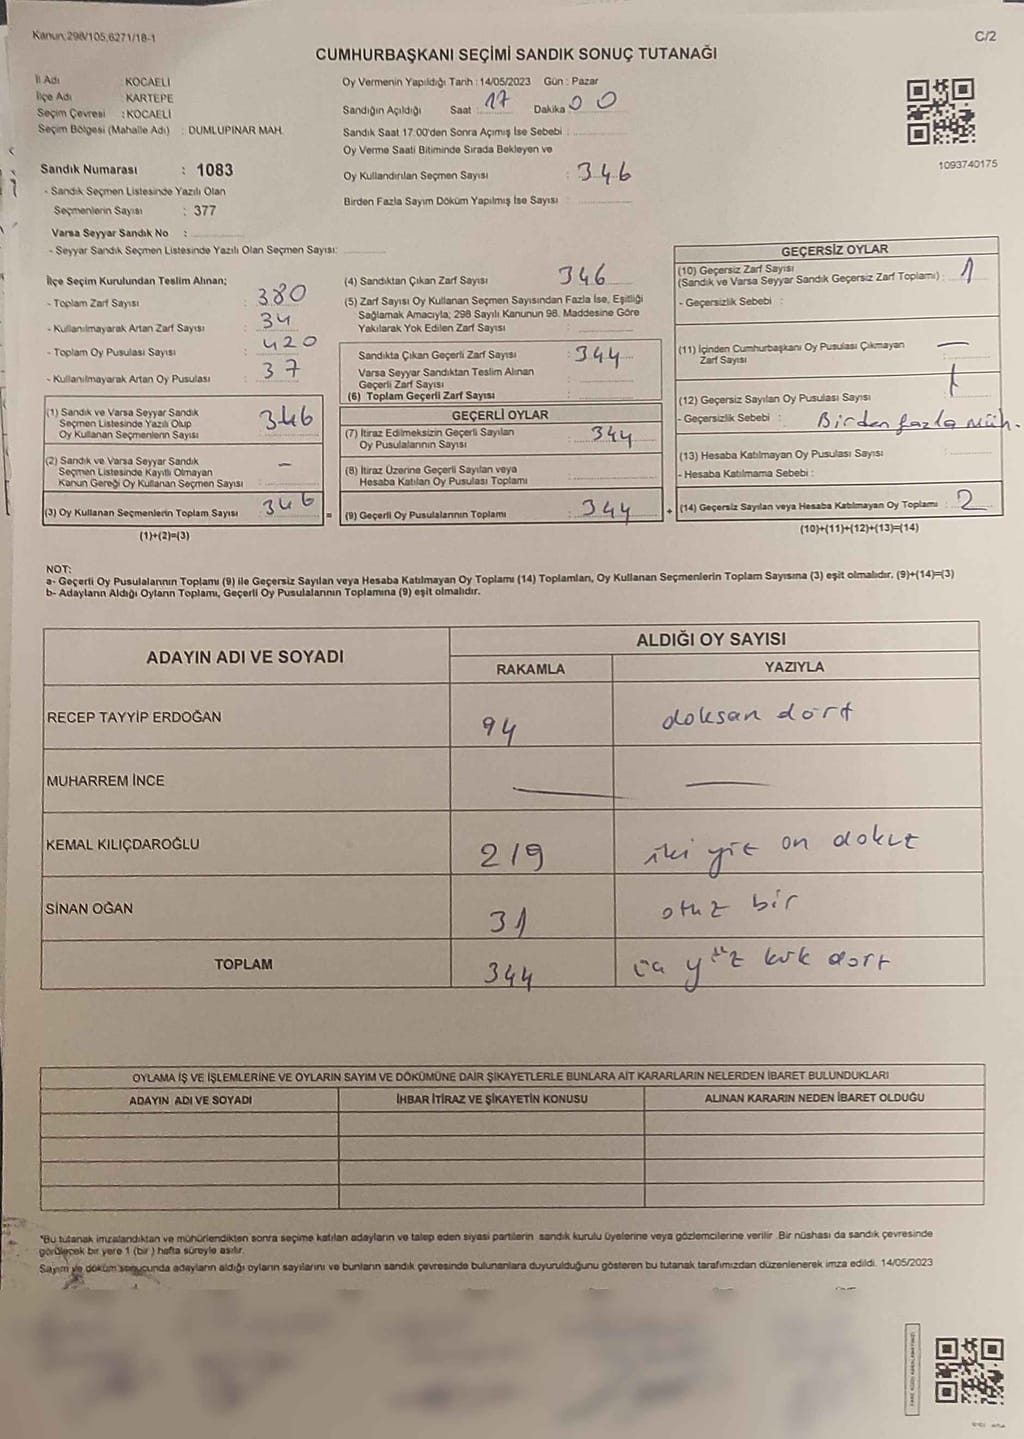 Kanun;298/105,6271/18-1
C/2
CUMHURBAŞKANI SEÇİMİ SANDIK SONUÇ TUTANAĞI
İl Adı : KOCAELİ
İlçe Adı : KARTEPE
Seçim Çevresi : KOCAELİ
Seçim Bölgesi (Mahalle Adı) : DUMLUPINAR MAH.
Oy Vermenin Yapıldığı Tarih : 14/05/2023 Gün : Pazar
Sandığın Açıldığı Saat : 17 Dakika 00
Sandık Saat 17:00'den Sonra Açımış İse Sebebi :
Oy Verme Saati Bitiminde Sırada Bekleyen ve
Oy Kullandırılan Seçmen Sayısı : 346
Birden Fazla Sayım Döküm Yapılmış İse Sayısı :
1093740175
Sandık Numarası : 1083
- Sandık Seçmen Listesinde Yazılı Olan
Seçmenlerin Sayısı : 377
Varsa Seyyar Sandık No :
- Seyyar Sandık Seçmen Listesinde Yazılı Olan Seçmen Sayısı:
İlçe Seçim Kurulundan Teslim Alınan;
- Toplam Zarf Sayısı : 380
- Kullanılmayarak Artan Zarf Sayısı : 34
- Toplam Oy Pusulası Sayısı : 420
- Kullanılmayarak Artan Oy Pusulası : 37
(1) Sandık ve Varsa Seyyar Sandık
Seçmen Listesinde Yazılı Olup
Oy Kullanan Seçmenlerin Sayısı 346
(2) Sandık ve Varsa Seyyar Sandık
Seçmen Listesinde Kayıtlı Olmayan
Kanun Gereği Oy Kullanan Seçmen Sayısı : –
(3) Oy Kullanan Seçmenlerin Toplam Sayısı : 346 =
(1)+(2)=(3)
(4) Sandıktan Çıkan Zarf Sayısı : 346
(5) Zarf Sayısı Oy Kullanan Seçmen Sayısından Fazla İse, Eşitliği
Sağlamak Amacıyla; 298 Sayılı Kanunun 98. Maddesine Göre
Yakılarak Yok Edilen Zarf Sayısı :
Sandıkta Çıkan Geçerli Zarf Sayısı : 344
Varsa Seyyar Sandıktan Teslim Alınan
Geçerli Zarf Sayısı :
(6) Toplam Geçerli Zarf Sayısı :
GEÇERLİ OYLAR
(7) İtiraz Edilmeksizin Geçerli Sayılan
Oy Pusulalarının Sayısı : 344
(8) İtiraz Üzerine Geçerli Sayılan veya
Hesaba Katılan Oy Pusulası Toplamı :
(9) Geçerli Oy Pusulalarının Toplamı : 344 +
GEÇERSİZ OYLAR
(10) Geçersiz Zarf Sayısı
(Sandık ve Varsa Seyyar Sandık Geçersiz Zarf Toplamı) : 1
- Geçersizlik Sebebi :
(11) İçinden Cumhurbaşkanı Oy Pusulası Çıkmayan
Zarf Sayısı : —
(12) Geçersiz Sayılan Oy Pusulası Sayısı : 1
- Geçersizlik Sebebi : Birden fazla müh.
(13) Hesaba Katılmayan Oy Pusulası Sayısı :
- Hesaba Katılmama Sebebi :
(14) Geçersiz Sayılan veya Hesaba Katılmayan Oy Toplamı : 2
(10)+(11)+(12)+(13)=(14)
NOT:
a- Geçerli Oy Pusulalarının Toplamı (9) ile Geçersiz Sayılan veya Hesaba Katılmayan Oy Toplamı (14) Toplamları, Oy Kullanan Seçmenlerin Toplam Sayısına (3) eşit olmalıdır. (9)+(14)=(3)
b- Adayların Aldığı Oyların Toplamı, Geçerli Oy Pusulalarının Toplamına (9) eşit olmalıdır.
ADAYIN ADI VE SOYADI
ALDIĞI OY SAYISI
RAKAMLA YAZIYLA
RECEP TAYYİP ERDOĞAN 94 doksan dört
MUHARREM İNCE — —
KEMAL KILIÇDAROĞLU 219 iki yüz on dokuz
SİNAN OĞAN 31 otuz bir
TOPLAM 344 üç yüz kırk dört
OYLAMA İŞ VE İŞLEMLERİNE VE OYLARIN SAYIM VE DÖKÜMÜNE DAİR ŞİKAYETLERLE BUNLARA AİT KARARLARIN NELERDEN İBARET BULUNDUKLARI
ADAYIN ADI VE SOYADI İHBAR İTİRAZ VE ŞİKAYETİN KONUSU ALINAN KARARIN NEDEN İBARET OLDUĞU
*Bu tutanak imzalandıktan ve mühürlendikten sonra seçime katılan adayların ve talep eden siyasi partilerin sandık kurulu üyelerine veya gözlemcilerine verilir. Bir nüshası da sandık çevresinde
görülecek bir yere 1 (bir ) hafta süreyle asılır.
Sayım ve döküm sonucunda adayların aldığı oyların sayılarını ve bunların sandık çevresinde bulunanlara duyurulduğunu gösteren bu tutanak tarafımızdan düzenlenerek imza edildi. 14/05/2023